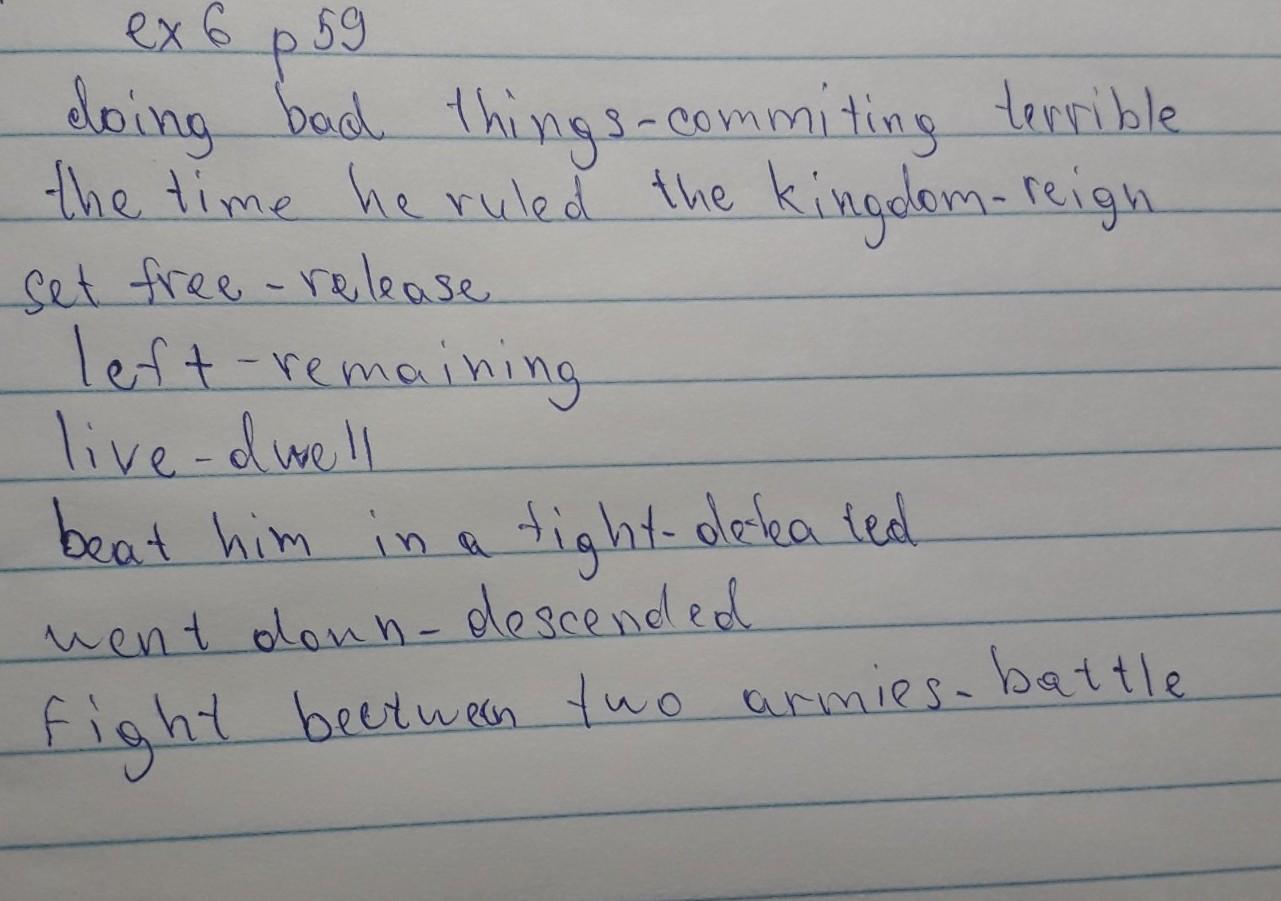 ex 6 p 59
doing bad things-commiting terrible
the time he ruled the kingdom-reign
set free-release
left-remaining
live-dwell
beat him in a fight-defeated
went down-descended
Fight beetween two armies-battle